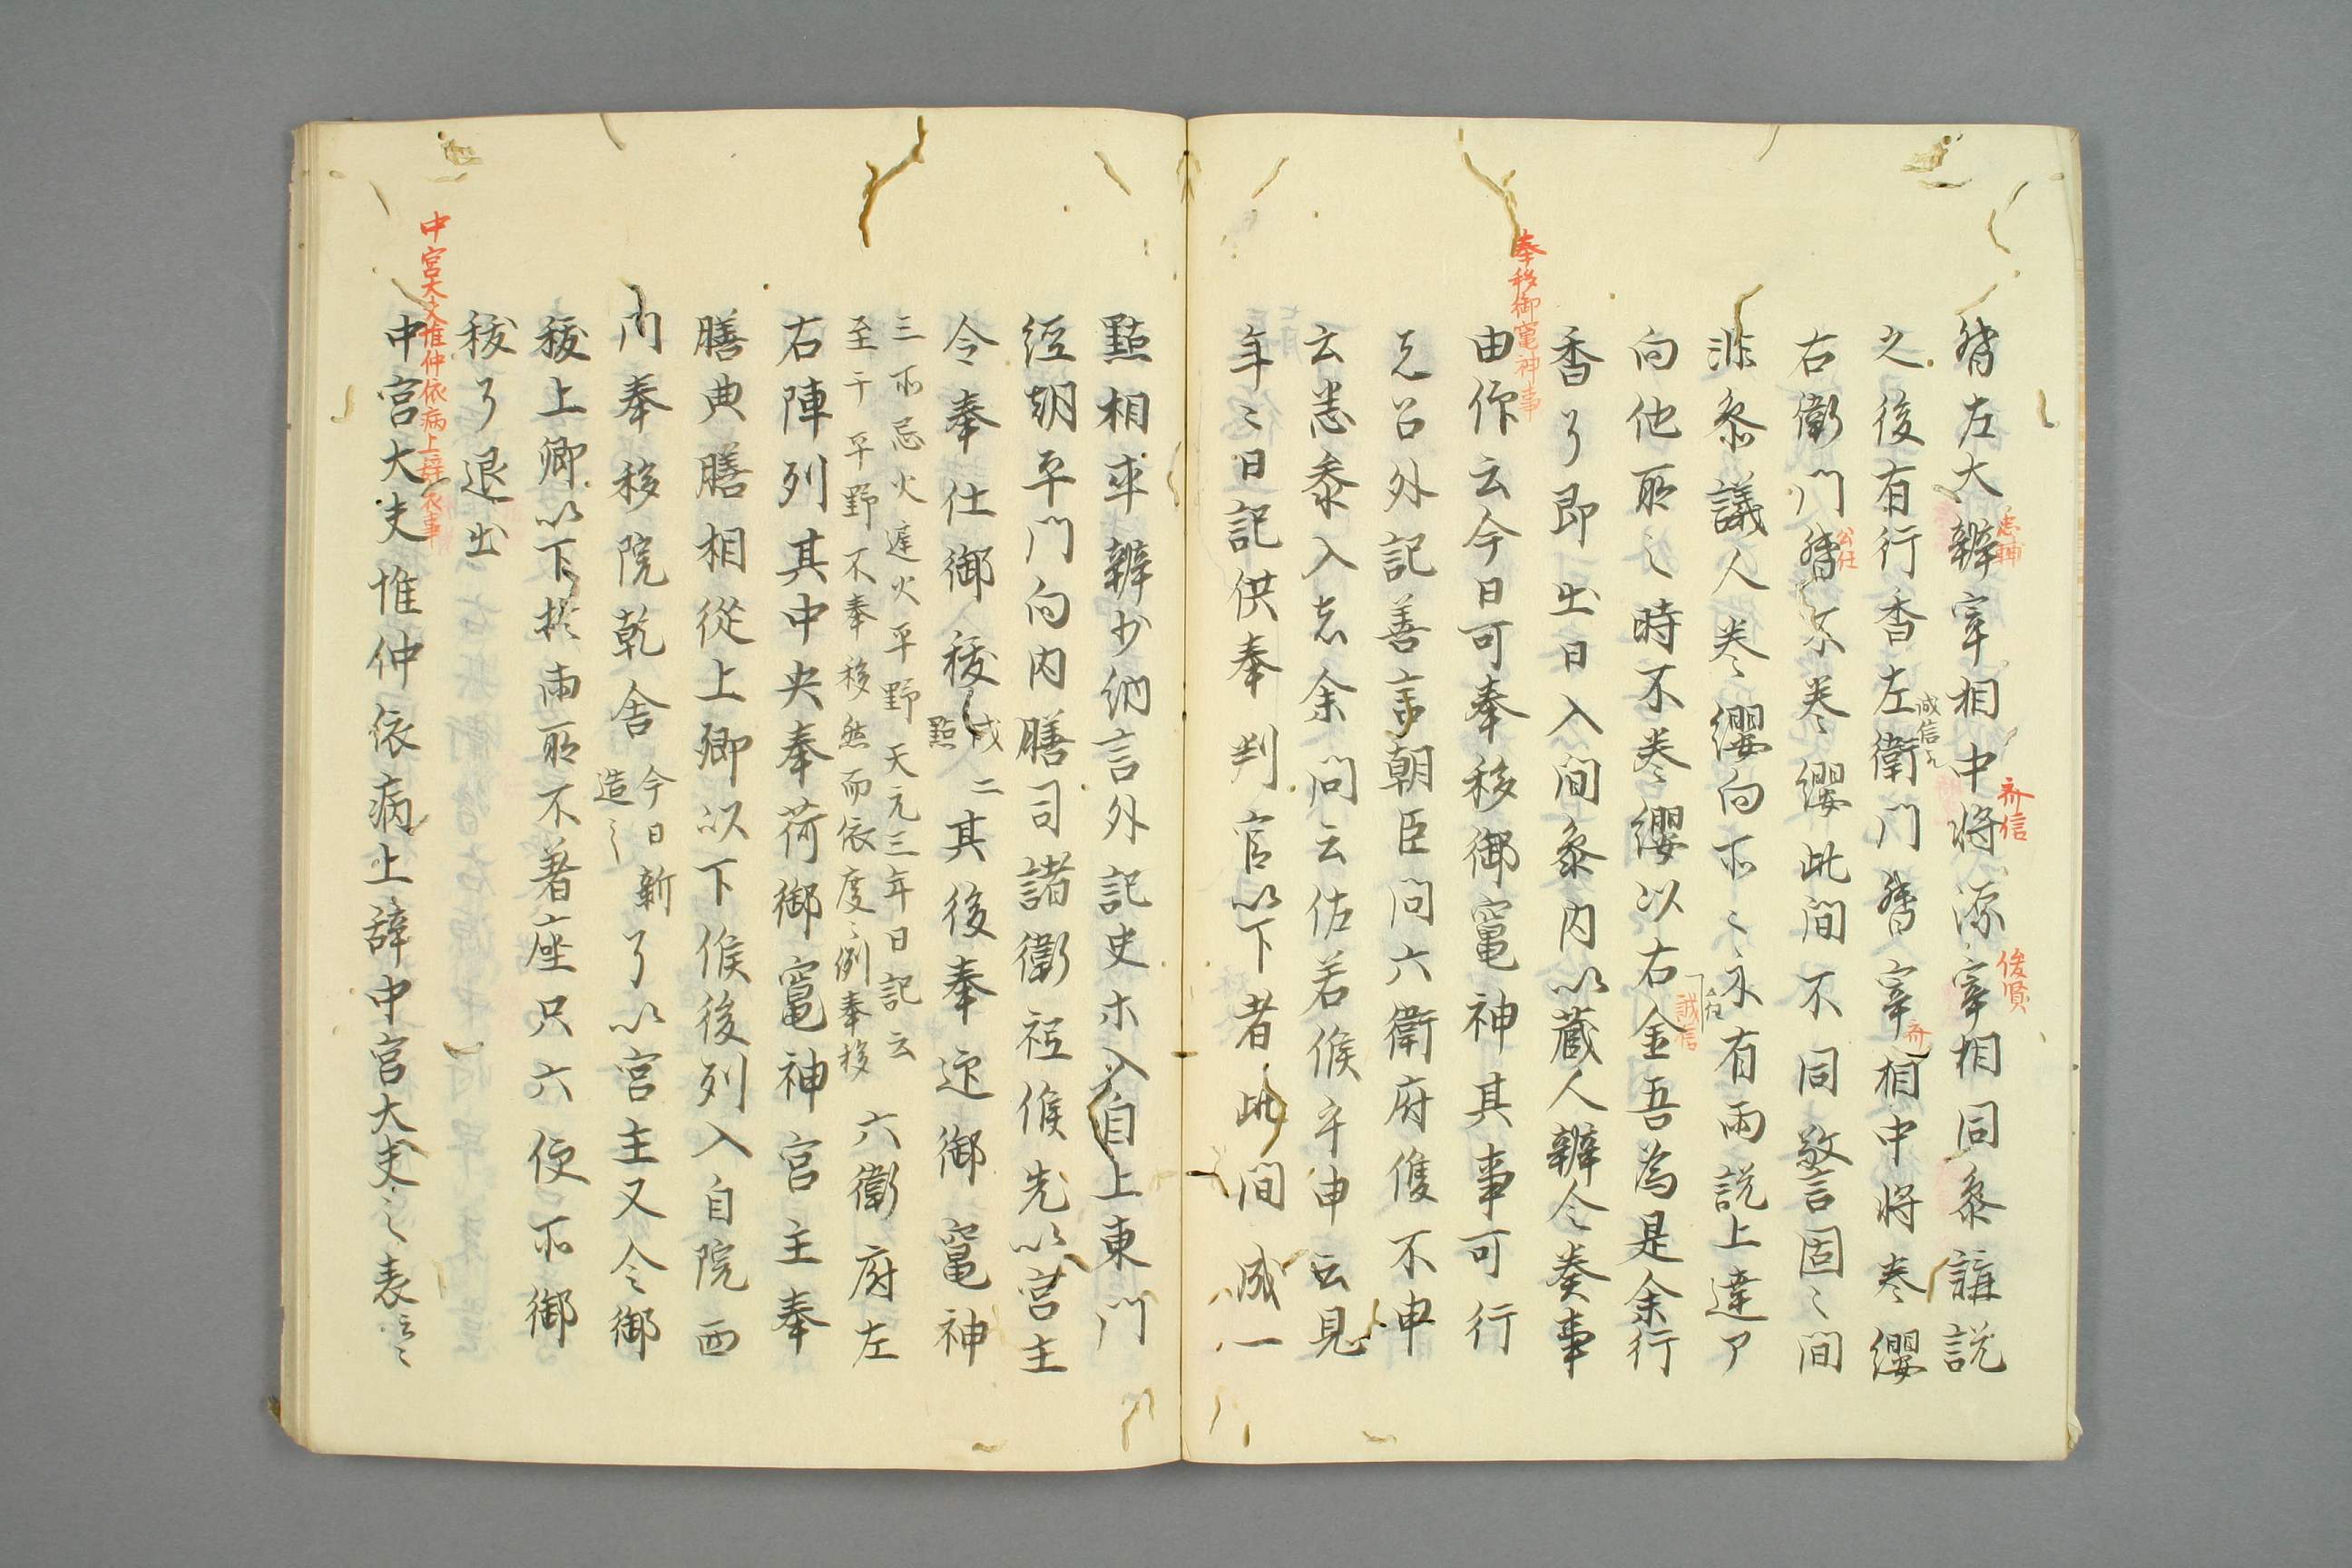 督左大辨宰相中將源宰相同叅講説
忠輔
齊信
俊賢
之後有行香左衛門督宰相中將卷纓
誠信
齊
右衛門督不卷纓此間不同警固〻間
公任
非叅議人卷纓向所〻永有兩説上達ア
向他所之時不卷纓以右金吾為是余行
誠信
香了即出日入間叅内以藏人辨令奏事
由作云今日可奉移御竈神其事可行
奉移御竈神事
先召外記善言朝臣問六衛府隻不申
云悉叅入者余問云佐若候乎申云見
年〻日記供奉判官以下者此間戌一
點相率辨少納言外記史ホ入自上東門
經朔平門向内膳司諸衛祗候先以宮主
令奉仕御秡 戌二點 其後奉迎御竈神
三所忌火遲火平野天元三年日記云
至于平野不奉移然而依度〻例奉移
六衛府左
右陣列其中央奉荷御竈神宮主奉
膳典膳相從上卿以下候後列入自院西
門奉移院乾舎 今日新造之 了以宮主又令御
秡上卿以下於南所不著座只六便所御
秡了退出
中宮大夫惟仲依病上辞表事
中宮大夫惟仲依病上辞中宮大夫之表云〻